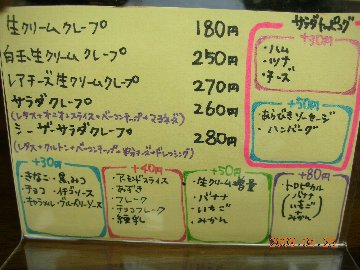 生クリームクレープ 180円
白玉生クリームクレープ 250円
レアチーズ生クリームクレープ 270円
サラダクレープ 260円
(レタス+オニオンスライス+ベーコンチップ+マヨネーズ)
シーザーサラダクレープ 280円
(レタス+クルトン+ベーコンチップ+ドレッシング)
サラダトッピング
+30円
・ハム
・ツナ
・チーズ
+50円
・あらびきソーセージ
・ハンバーグ
+30円
・きなこ・黒みつ
・チョコ・イチゴソース
・キャラメル・ブルーベリーソース
+40円
・アーモンドスライス
・あずき
・フレーク
・チョコフレーク
・練乳
+50円
・生クリーム増量
・バナナ
・いちご
・みかん
+80円
・トロピカル
バナナ
いちご
みかん